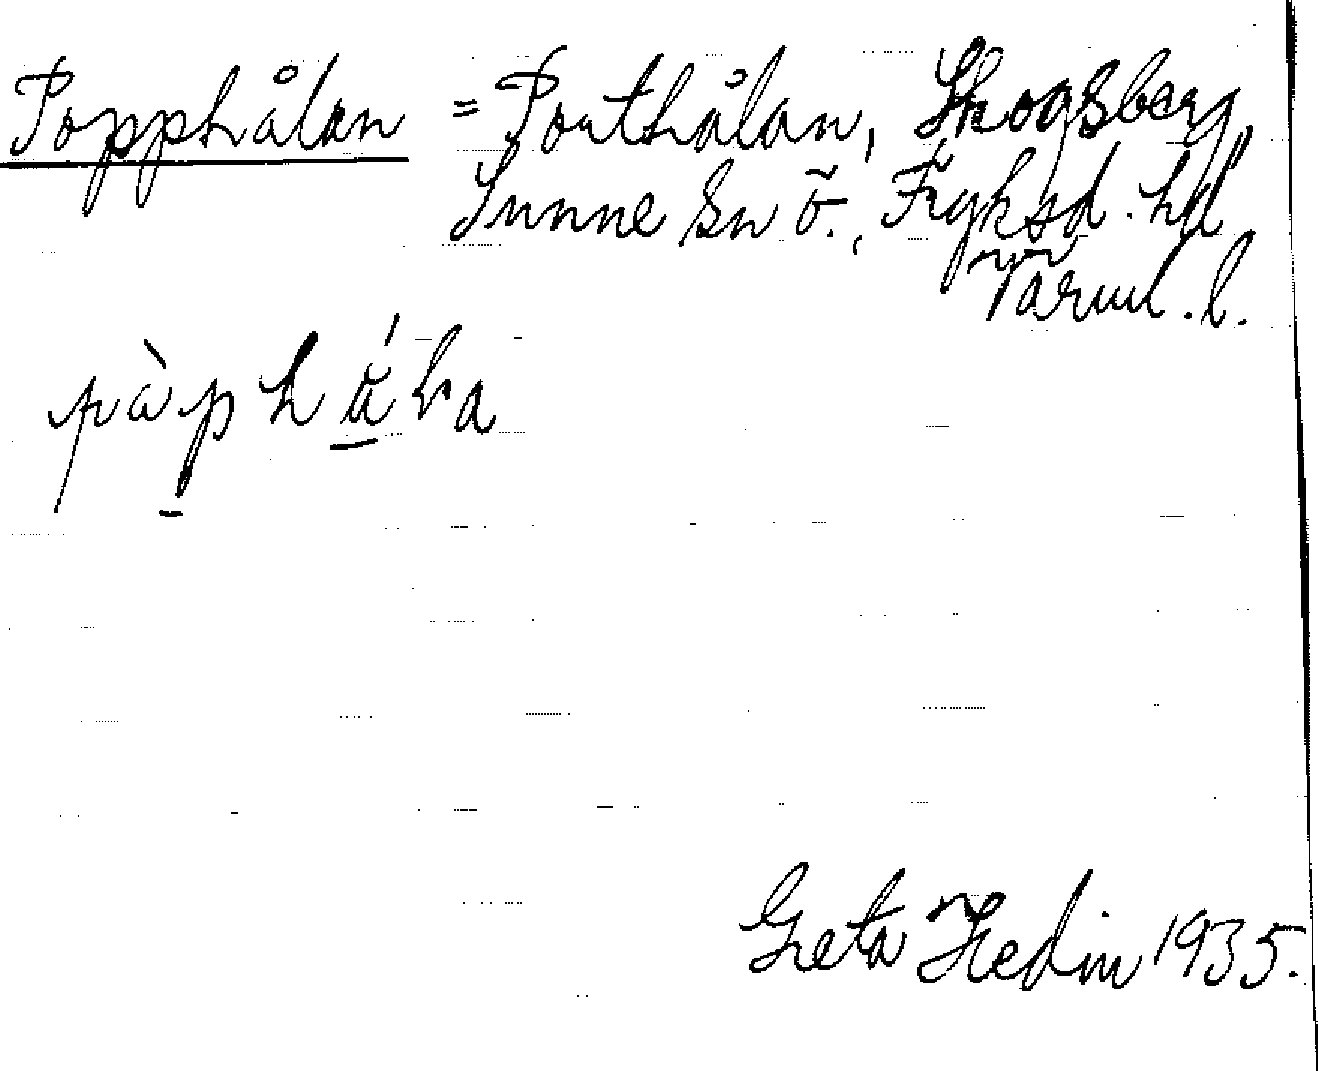 Popphålan = Porthålan, Skogsberg,
Sunne sn ö., Fryksd. hd
Värml. l.
pàpháɫa
Greta Hedin 1935.